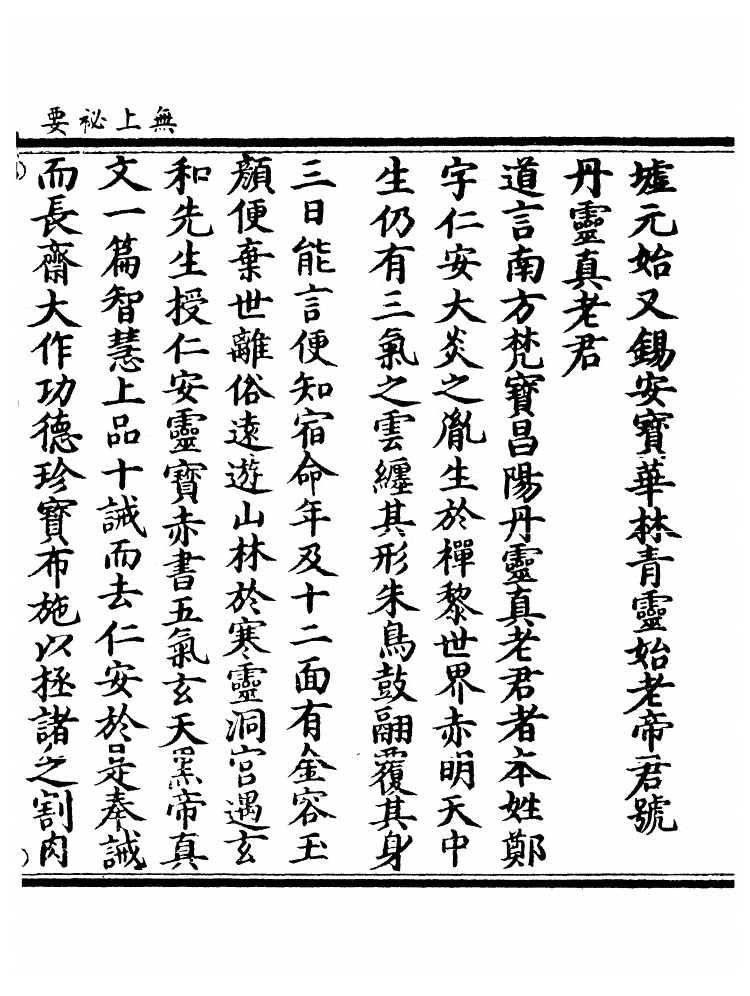 無上祕要
墟元始又錫安寶華林青靈始老帝君號
丹靈真老君
道言南方梵寶昌陽丹靈真老君者本姓鄭
字仁安大炎之胤生於禪黎世界赤明天中
生仍有三氣之雲纏其形朱鳥鼓翮覆其身
三日能言便知宿命年及十二面有金容玉
顏便棄世離俗遠遊山林於寒靈洞宮遇玄
和先生授仁安靈寶赤書五氣玄天黑帝真
文一篇智慧上品十誡而去仁安於是奉誡
而長齋大作功德珍寶布施以拯諸乏割肉